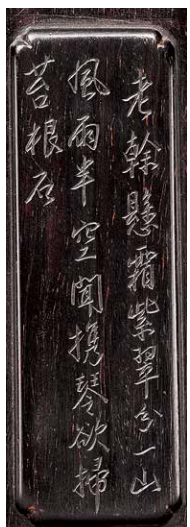 老幹懸霜紫翠分一山
風雨半空聞携琴欲掃
苔根石